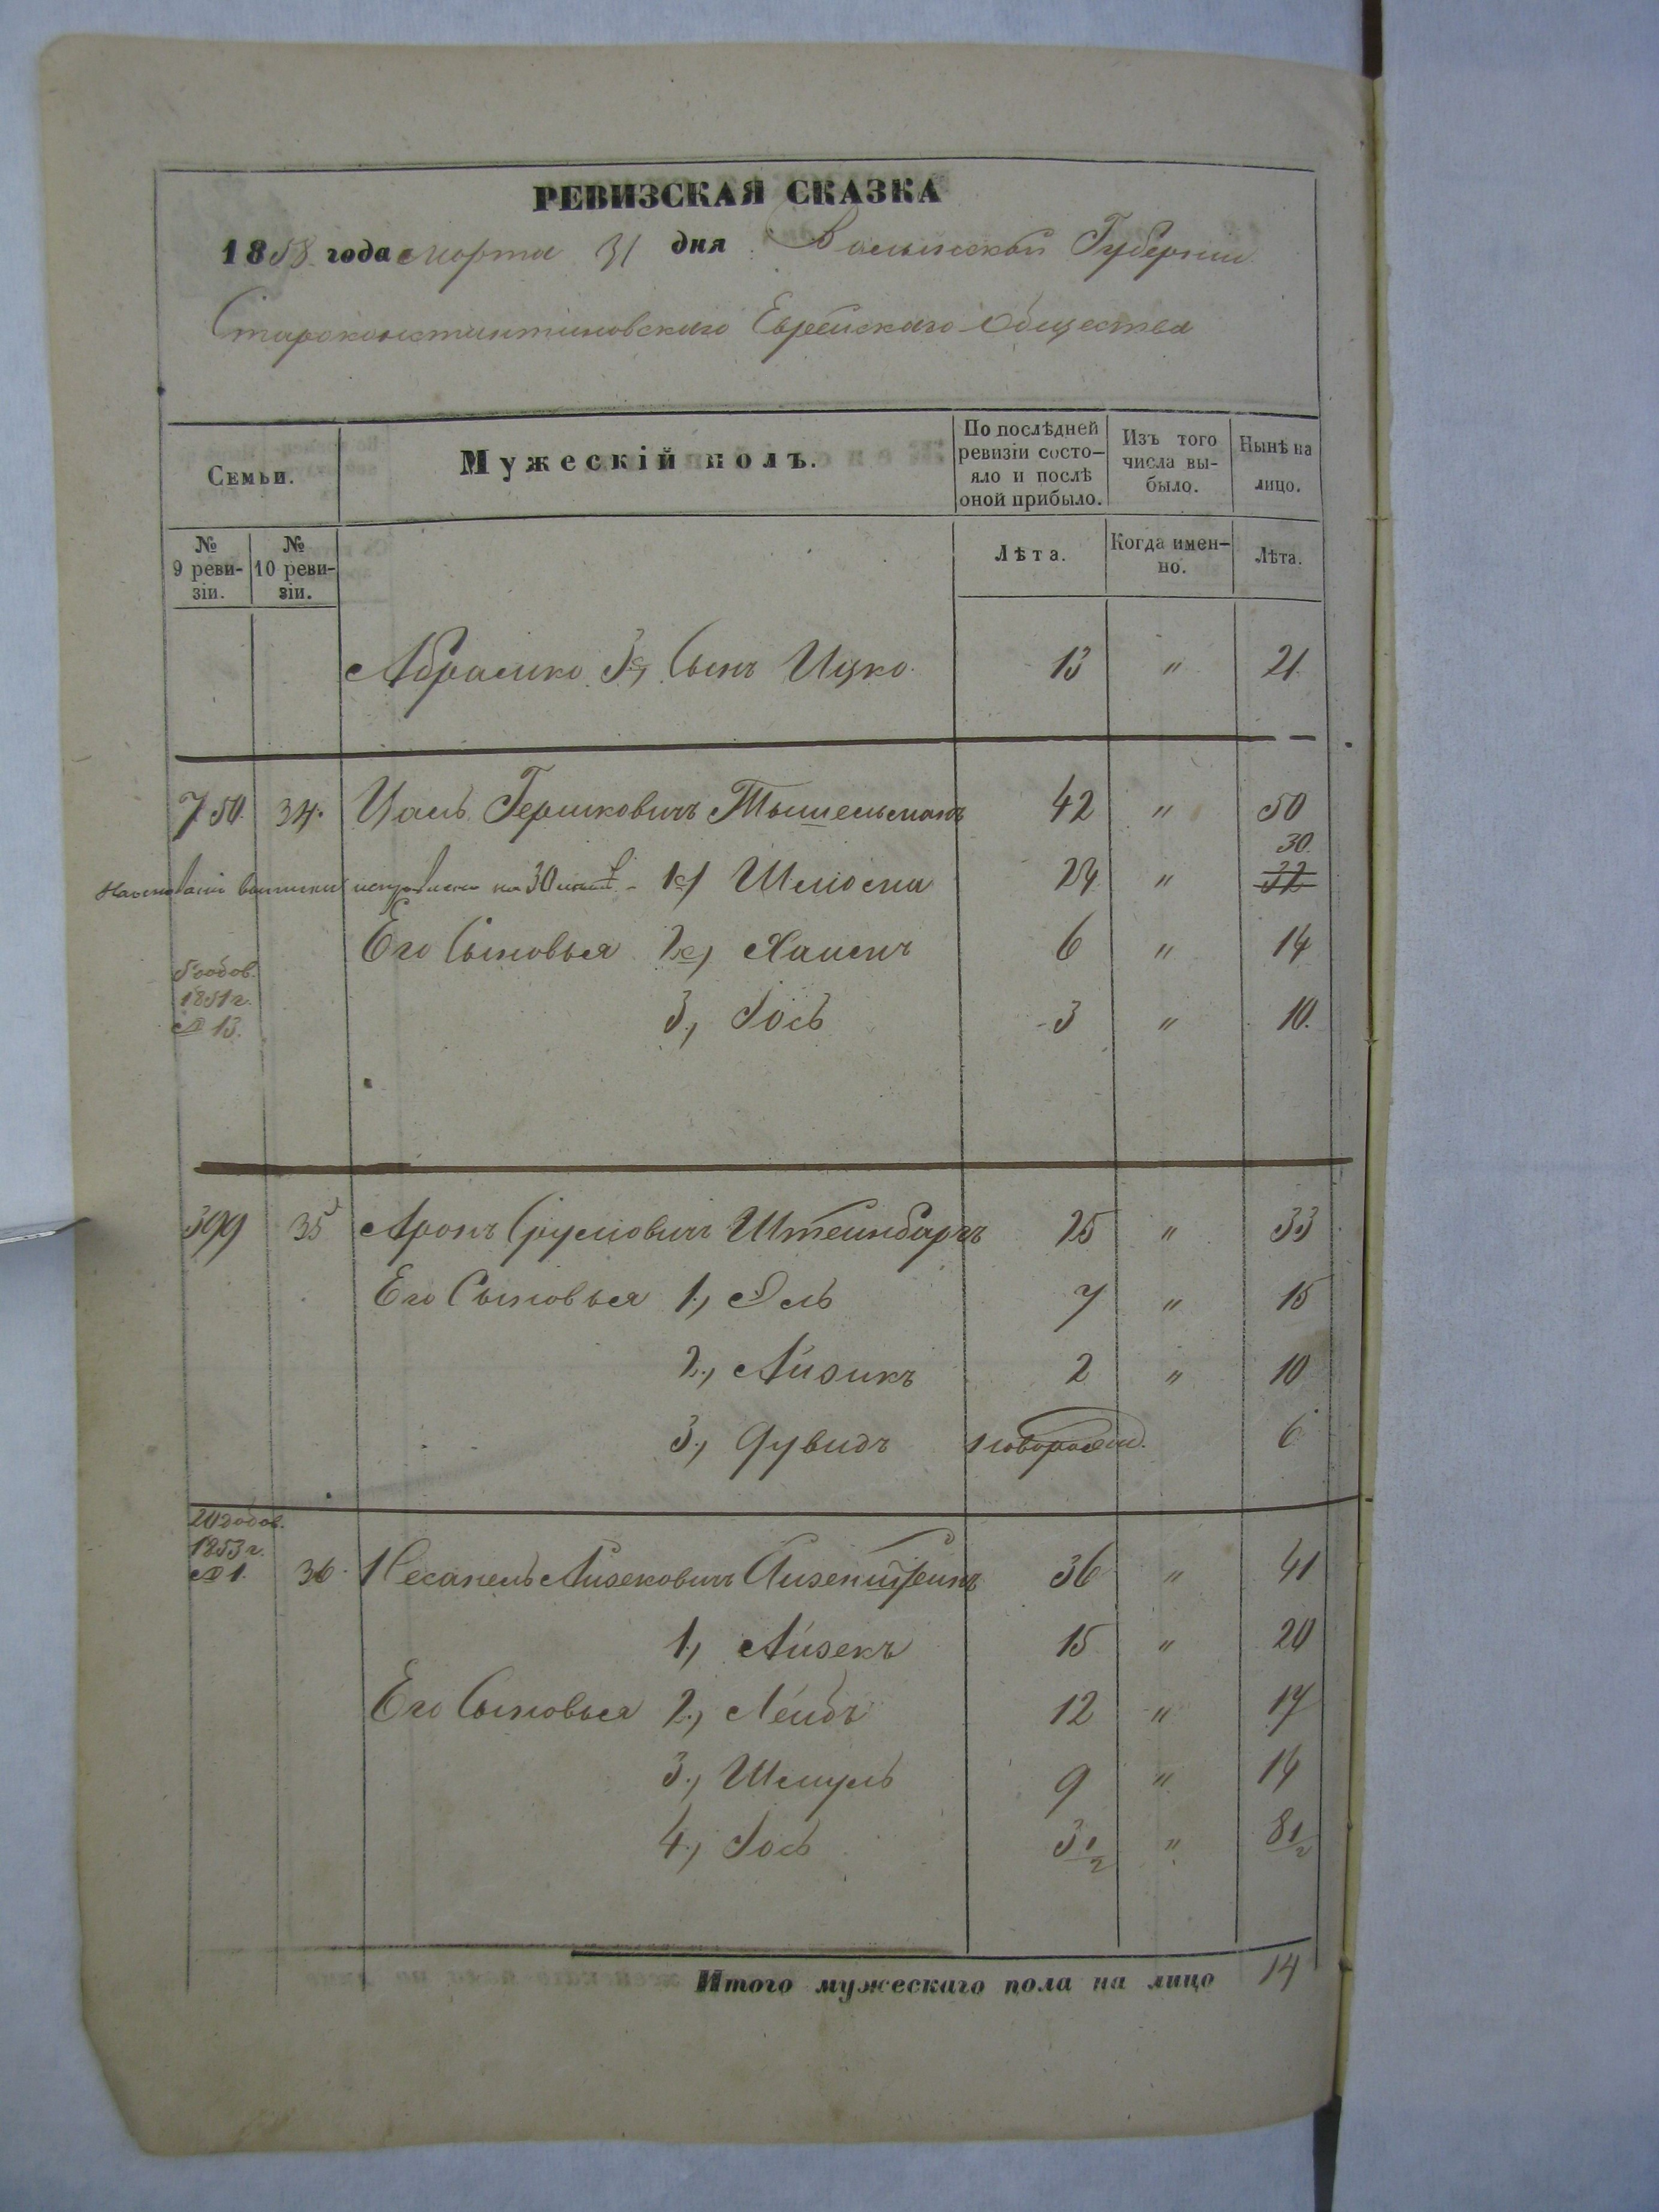 РЕВИЗСКАЯ СКАЗКА
1858 года Марта 31 дня Волынской Губернии
Староконстантиновскаго Еврейскаго Общества
Семьи. Мужескій полъ. По послѣдней ревизіи состояло и послѣ оной прибыло. Изъ того числа выбыло. Нынѣ на лицо.
№ 9 ревизіи. № 10 ревизіи. Лѣта. Когда именно. Лѣта.
Абрамко 3, Сынъ Ицко. 13 " 21
750. 34. Гершковичъ 42 " 50
на 30 1, Шлиома 24 " 30. 32
Его Сыновья 2, Хаимъ 6 " 14
5 добов. 1851 г. № 13.
3, Іось 3 " 10.
399 35 Аронъ Сруловичъ Штеинбаргъ 25 " 33
Его Сыновья 1, Эль 7 " 15
2, Айзикъ 2 " 10
3, Дувидъ новорожд. 6
20 додов. 1853 г. № 1. 36. Айзековичъ Айзенштеинъ 36 " 41
1, Айзекъ 15 " 20
Его Сыновья 2, Лейбъ 12 " 17
3, Шмуль 9 " 14
4, Іось 3 1/2 " 8 1/2
Итого мужескаго пола на лицо 14